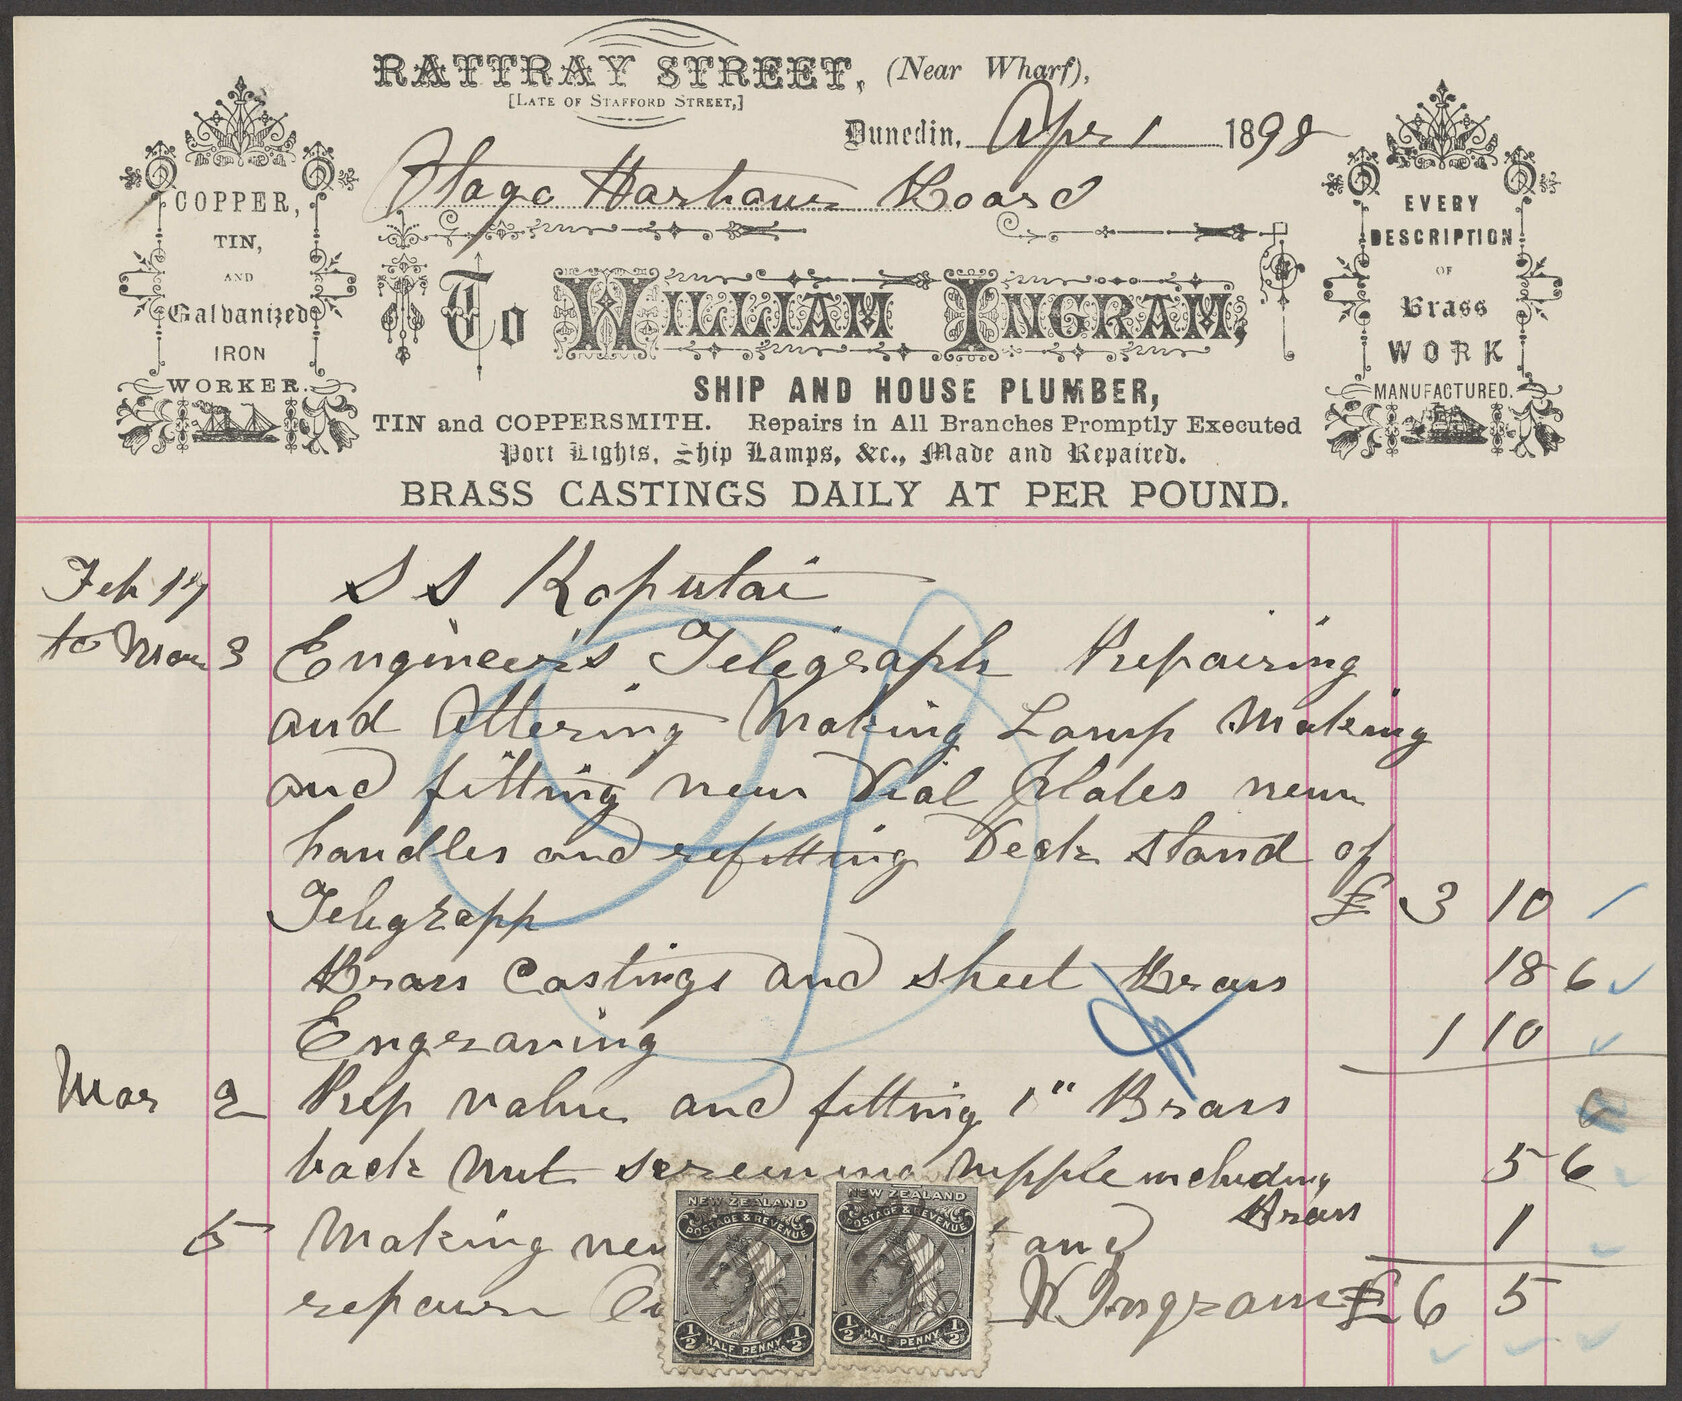 RATTRAY STREET, (Near Wharf),
[LATE OF STAFFORD STREET,]
Dunedin, Apr 1 1898
Otago Harbour Board
COPPER,
TIN,
AND
Galvanized
IRON
WORKER.
To WILLIAM INGRAM,
SHIP AND HOUSE PLUMBER,
TIN and COPPERSMITH. Repairs in All Branches Promptly Executed
Port Lights, Ship Lamps, &c., Made and Repaired.
BRASS CASTINGS DAILY AT PER POUND.
EVERY
DESCRIPTION
OF
Brass
WORK
MANUFACTURED.
Feb 17 S S Koputai
to Mar 3 Engineers Telegraph Repairing
and Altering Making Lamp Making
and fitting new Dial Plates new
handles and refitting Deck stand of
Telegrapp £ 3 10
Brass Castings and sheet Brass 18 6
Engraving 1 10
Mar 2 Rep valve and fitting 1" Brass
back nut screwing nipple including 5 6
Brass
5 Making new and 1
repairn W Ingram £ 6 5
NEW ZEALAND
POSTAGE & REVENUE
1/2 HALF PENNY 1/2
NEW ZEALAND
POSTAGE & REVENUE
1/2 HALF PENNY 1/2